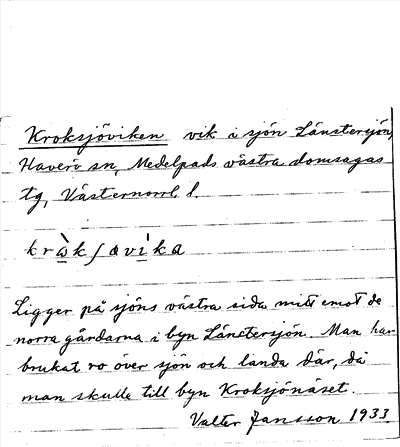 Kroksjöviken vik i sjön Länstersjön,
Haverö sn, Medelpads västra domsagas
tg, Västernorrl. l.
kròkʃøvìka
Ligger på sjöns västra sida mitt emot de
norra gårdarna i byn Länstersjön. Man har
brukat ro över sjön och landa där, då
man skulle till byn Kroksjönäset.
Valter Jansson 1933.